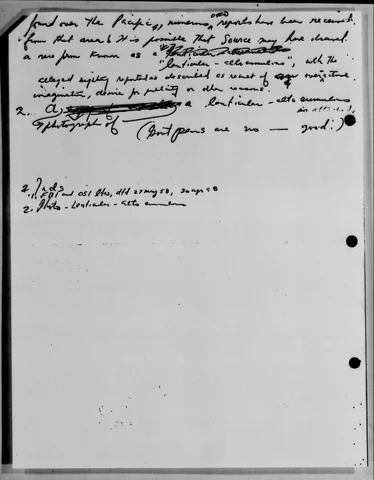 found over the Pacific, numerous UFO reports have been received
from that area & it is possible that source may have observed
a rare form known as a
"lenticular - alto cumulus", with the
alleged sighting reported as described as result of over active
imagination, desire for publicity or other reasons.
2. A) a lenticular - alto cumulus
photograph of is attached.
(Govt pens are no — good!)
2 Incls
1. FBI and OSI ltrs, dtd 27 May 58, 30 Apr 58
2. Photo - lenticular - alto cumulus